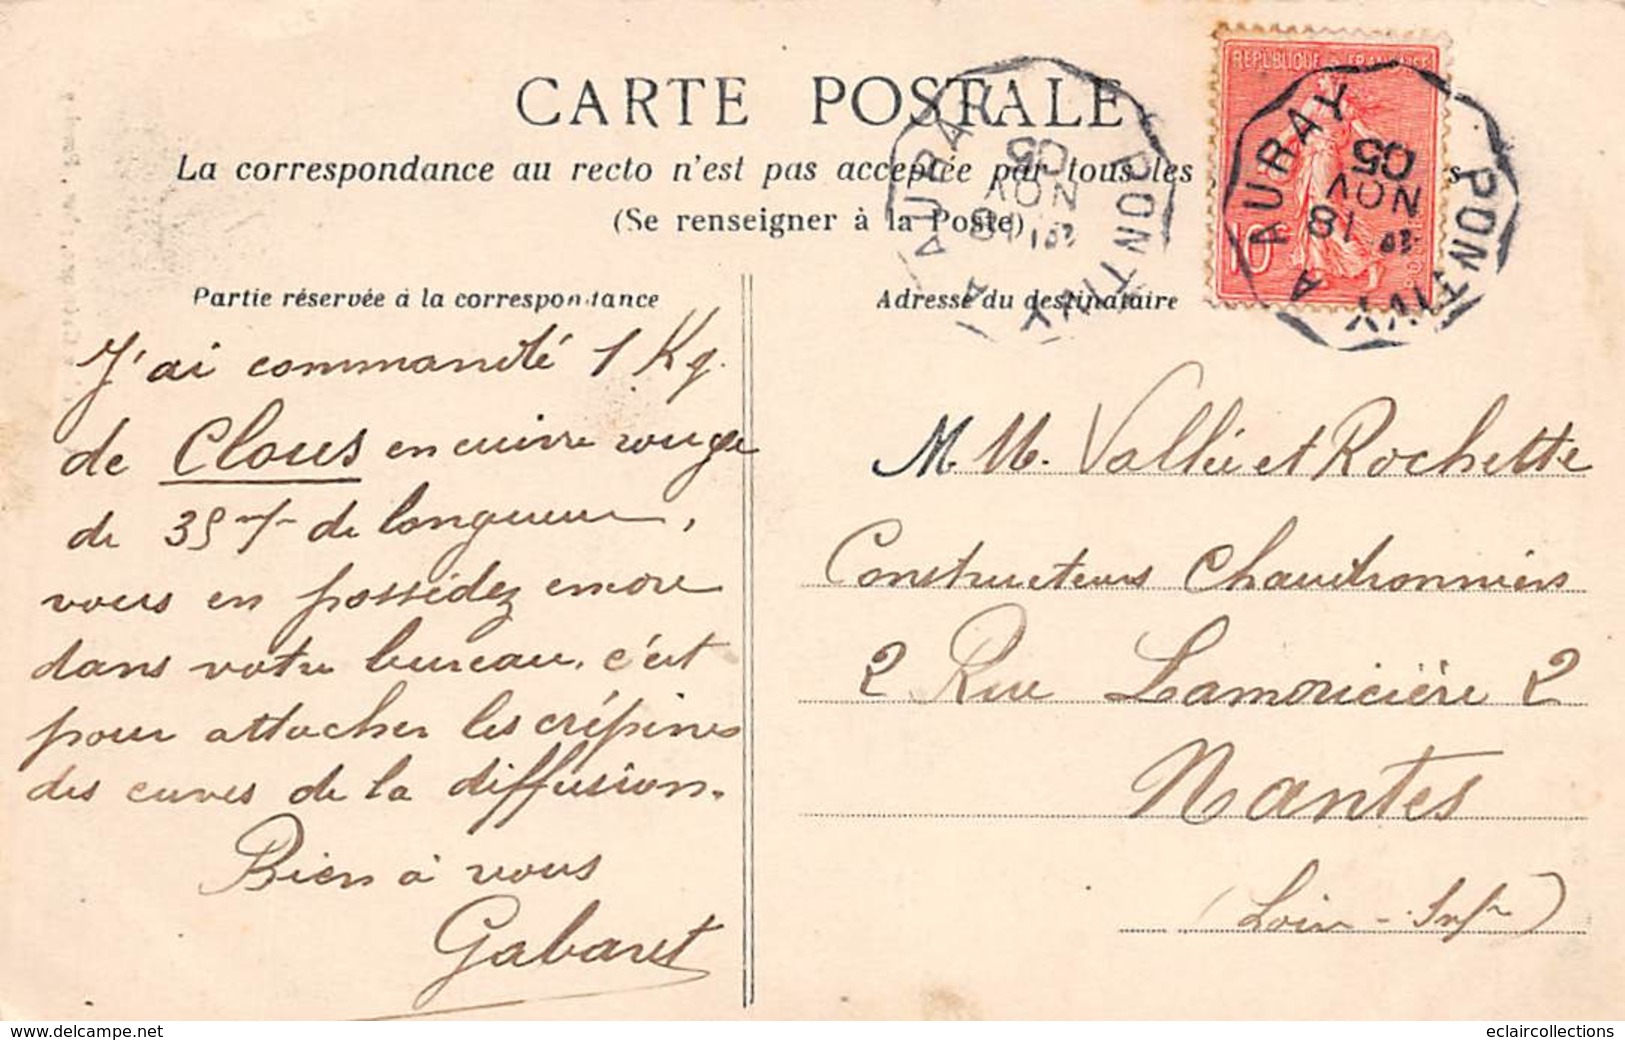 CARTE POSTALE
La correspondance au recto n'est pas acceptée par tous les
(Se renseigner à la Poste)
Partie réservée à la correspondance
J'ai commandé 1 Kg.
de Clous en cuivre rouge
de 35 m/m de longueur,
vous en possédez encore
dans votre bureau, c'est
pour attacher les crépines
des cuves de la diffusion.
Bien à vous
Gabaret
Adresse du destinataire
M. M. Vallée et Rochette
Constructeurs Chaudronniers
2 Rue Lamoricière 2
Nantes
(Loire-Infre)
REPUBLIQUE FRANÇAISE
10
AURAY
A
PONTIVY
18
NOV
05
AURAY
A
PONTIVY
18
NOV
05
www.delcampe.net
eclaircollections